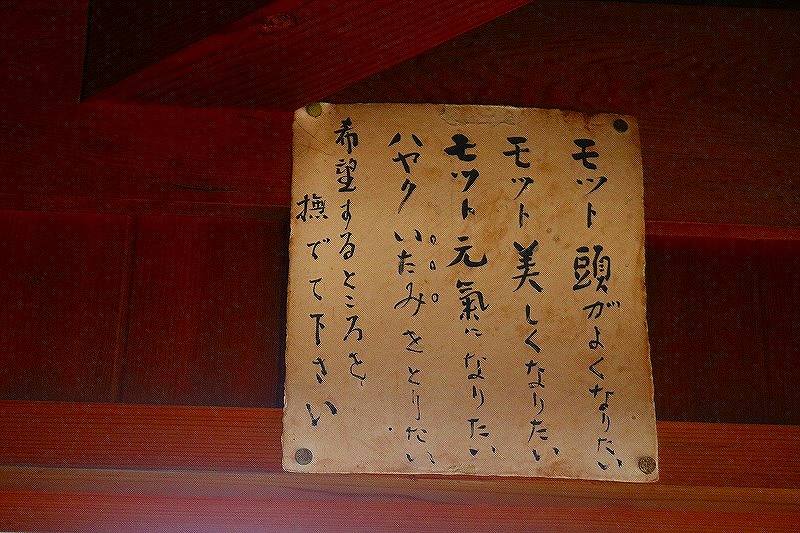 モット頭がよくなりたい
モット美しくなりたい
モット元氣になりたい
ハヤクいたみをとりたい
希望するところを
撫でて下さい